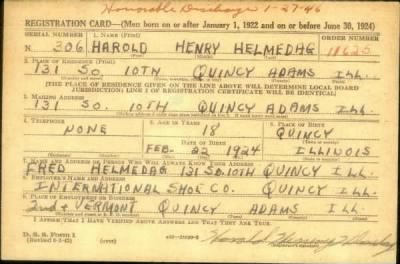 Honorable Discharge 1-27-46
REGISTRATION CARD—(Men born on or after January 1, 1922 and on or before June 30, 1924)
SERIAL NUMBER 1. NAME (Print) ORDER NUMBER
N. 306 HAROLD HENRY HELMEDAG 11625
2. PLACE OF RESIDENCE (Print)
131 SO. 10TH QUINCY ADAMS ILL.
(THE PLACE OF RESIDENCE GIVEN ON THE LINE ABOVE WILL DETERMINE LOCAL BOARD
JURISDICTION; LINE 2 OF REGISTRATION CERTIFICATE WILL BE IDENTICAL)
3. MAILING ADDRESS
131 SO. 10TH QUINCY ADAMS ILL.
4. TELEPHONE 5. AGE IN YEARS 6. PLACE OF BIRTH
NONE 18 QUINCY
DATE OF BIRTH
FEB. 22 1924 ILLINOIS
7. NAME AND ADDRESS OF PERSON WHO WILL ALWAYS KNOW YOUR ADDRESS
FRED HELMEDAG 131 SO. 10TH QUINCY ILL.
8. EMPLOYER'S NAME AND ADDRESS
INTERNATIONAL SHOE CO. QUINCY ILL.
9. PLACE OF EMPLOYMENT OR BUSINESS
2nd + VERMONT QUINCY ADAMS ILL.
I AFFIRM THAT I HAVE VERIFIED ABOVE ANSWERS AND THAT THEY ARE TRUE.
D. S. S. Form 1
Harold Henry Helmedag